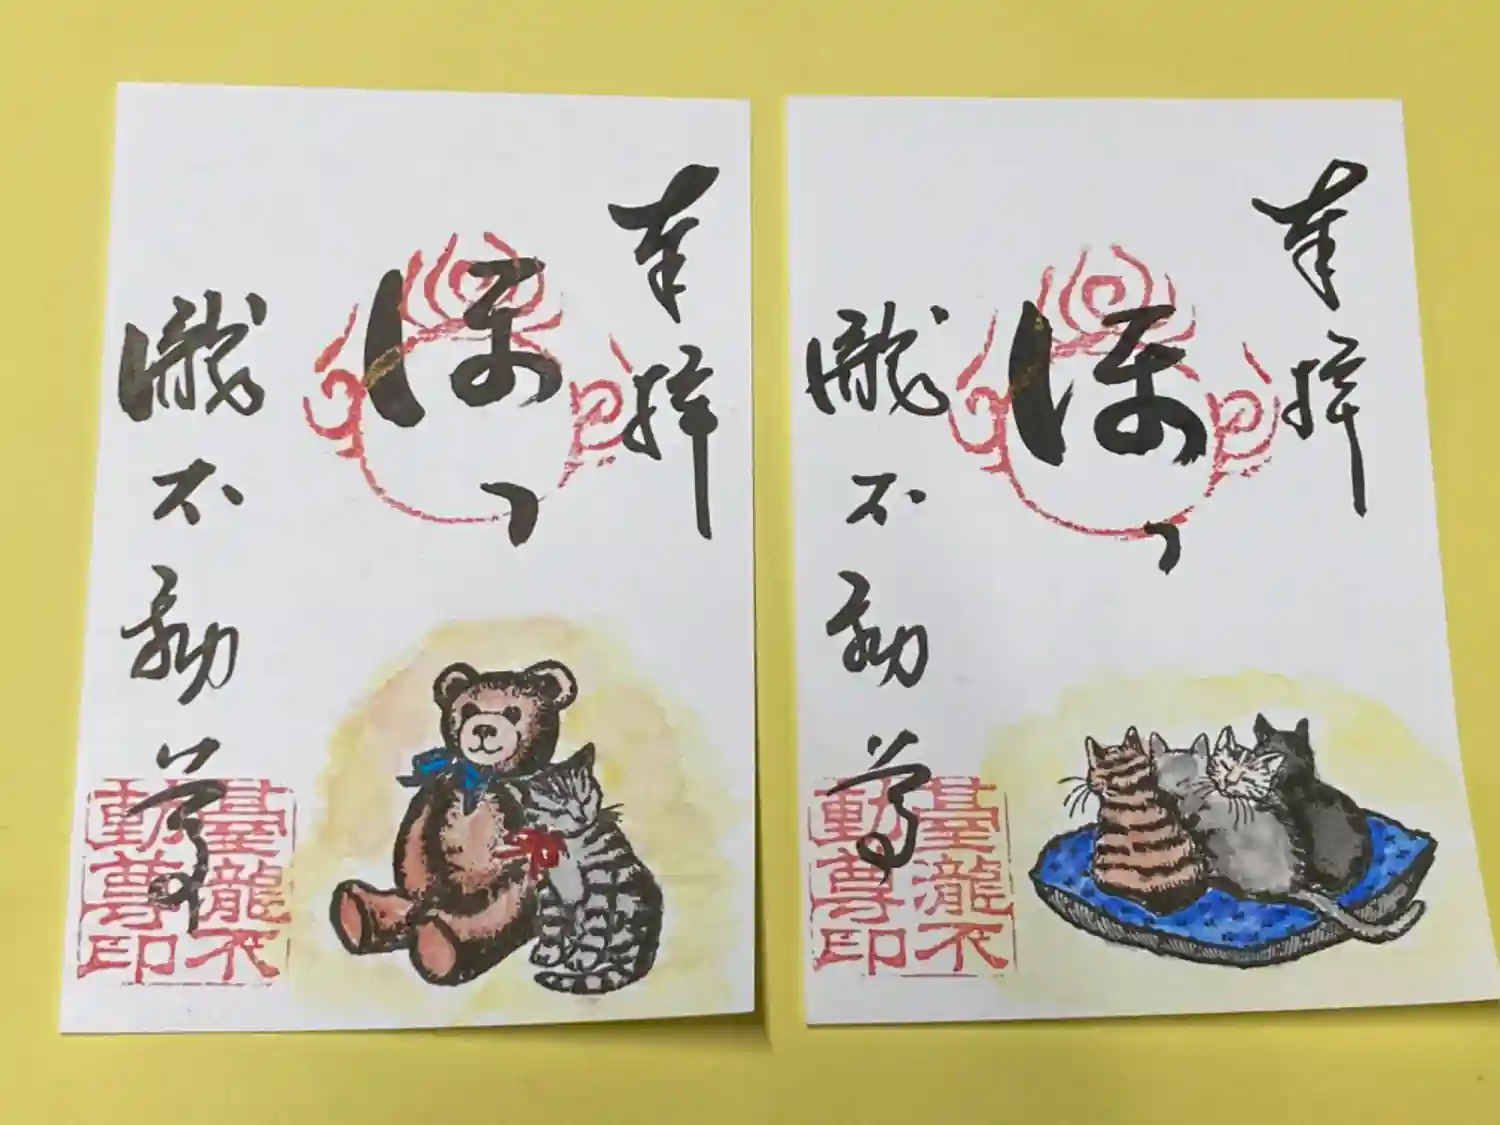 奉拝
ほっ
瀧不動尊
臺瀧不
動尊印
奉拝
ほっ
瀧不動尊
臺瀧不
動尊印